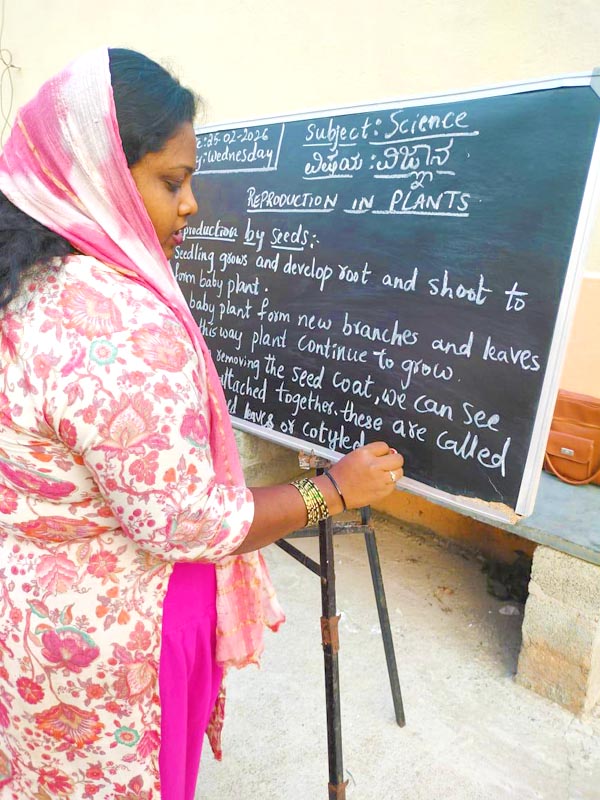 :25-02-2026
y:Wednesday
Subject: Science
ವಿಷಯ : ವಿಜ್ಞಾನ
REPRODUCTION IN PLANTS
production by seeds:-
Seedling grows and develop root and shoot to
form baby plant.
baby plant form new branches and leaves
this way plant continue to grow.
removing the seed coat, we can see
attached together. these are called
leaves or cotyled